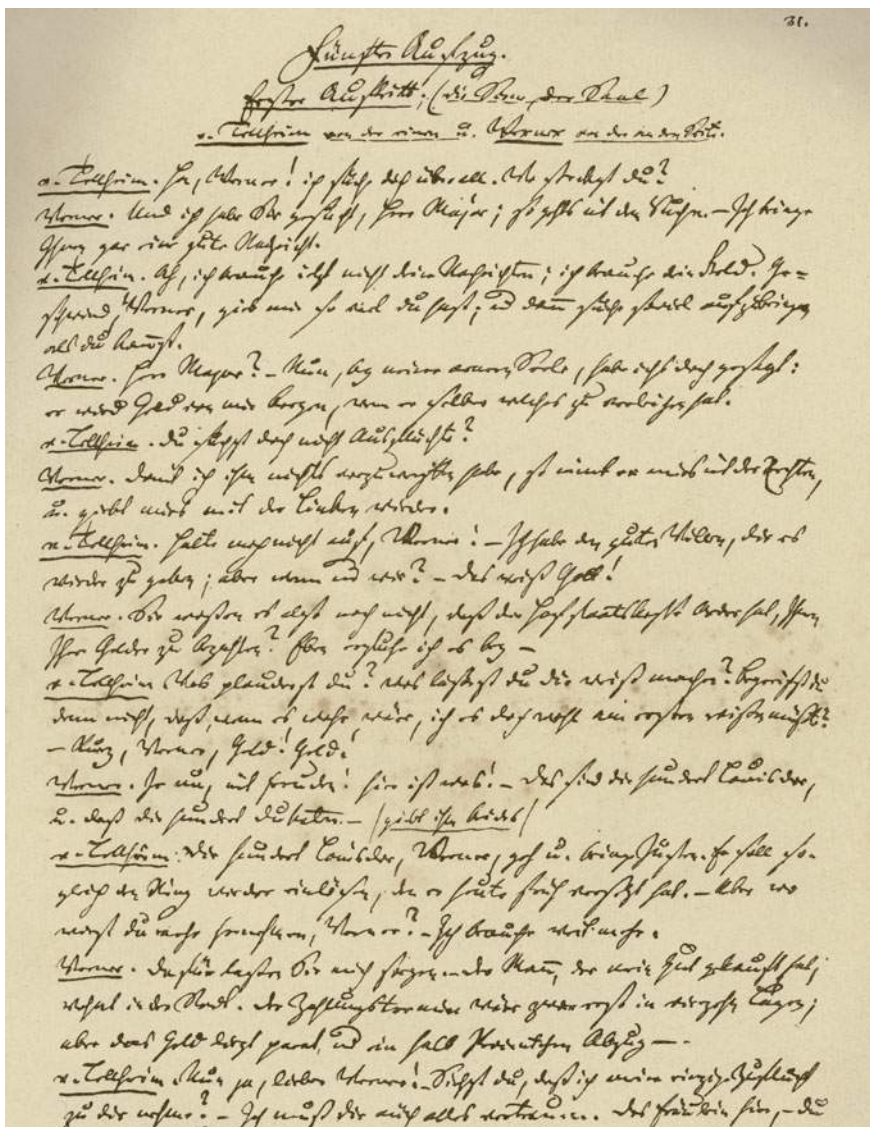 31.
Fünfter Aufzug.
Erster Auftritt; (die Scene, der Saal)
v. Tellheim von der einen u. Werner von der andern Seite.
v. Tellheim. Ha, Werner! ich suche dich überall. Wo steckst du?
Werner. Und ich habe Sie gesucht, Herr Major; so gehts mit dem Suchen. – Ich bringe
Ihnen gar eine gute Nachricht.
v. Tellheim. Ah, ich brauche itzt nicht deine Nachrichten; ich brauche dein Geld. Ge=
schwind, Werner, gieb mir so viel du hast; und dann suche soviel aufzubringen
als du kannst.
Werner. Herr Major? – Nun, bey meiner armen Seele, habe ichs doch gesagt:
er wird Geld von mir borgen, wenn er selber welches zu verleihen hat.
v. Tellheim. Du suchst doch nicht Ausflüchte?
Werner. Damit ich ihm nichts vorzuwerffen habe, so nimt er mirs mit der Rechten,
u. giebt mirs mit der Linken wieder.
v. Tellheim. Halte mich nicht auf, Werner! – Ich habe den guten Willen, dir es
wieder zu geben; aber wenn und wie? – Das weiß Gott!
Werner. Sie wissen es also noch nicht, daß die Hofstaatskasse Ordre hat, Ihnen
Ihre Gelder zu bezahlen? Eben erfuhr ich es bey –
v. Tellheim Was plauderst du? was lässest du dir weiß machen? Begreifst du
denn nicht, daß, wenn es wahr wäre, ich es doch wohl am ersten wissen müßte?
– Kurz, Werner, Geld! Geld!
Werner. Je nu, mit Freuden! hier ist was! – Das sind die hundert Louisdor,
u. das die hundert Dukaten. – (giebt ihm beides)
v. Tellheim. Die hundert Louisdor, Werner, geh u. bringe Justen. Er soll so=
gleich den Ring wieder einlösen, den er heute früh versetzt hat. – Aber wo
wirst du mehr hernehmen, Werner? – Ich brauche weit mehr.
Werner. Dafür lassen Sie mich sorgen. – Der Mann, der mein Gut gekauft hat,
wohnt in der Stadt. Der Zahlungstermin wäre zwar erst in vierzehn Tagen;
aber das Geld liegt parat, und ein halb Procentchen Abzug –.
v. Tellheim. Nun ja, lieber Werner! – Siehst du, daß ich meine einzige Zuflucht
zu dir nehme? – Ich muß dir auch alles vertrauen. Das Fräulein hier, – du